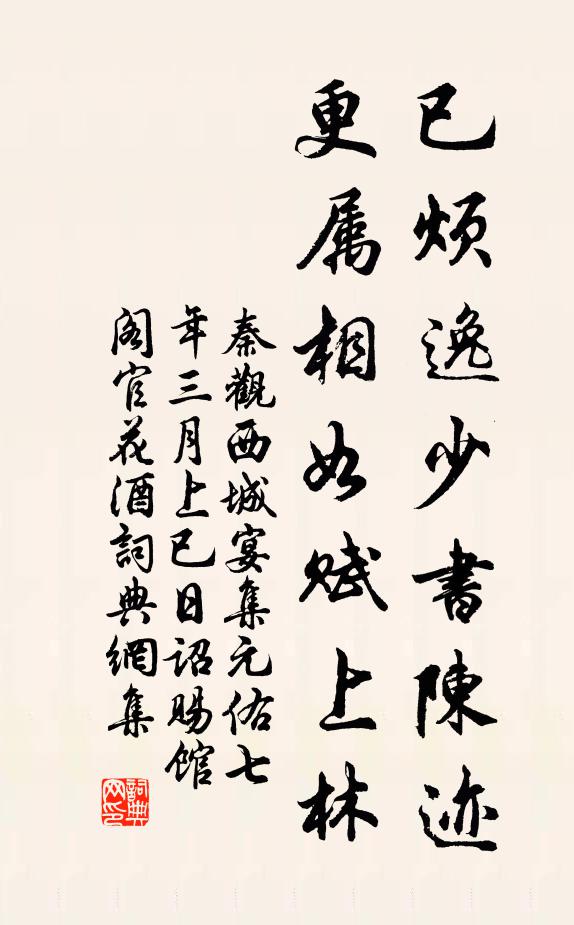 已烦逸少書陳迹
更属相如赋上林
秦觀西城宴集元佑七
年三月上巳日詔賜館
阁官花酒詞典網集
詞典网印